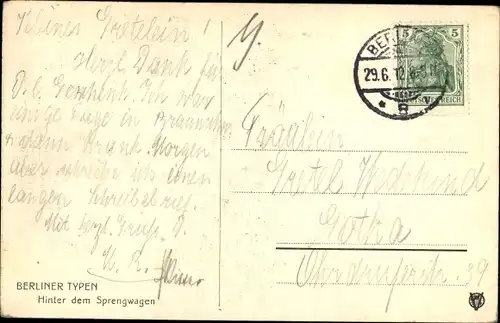 Kleines Gretelein!
Herzl. Dank für
D. l. Geschenk. Ich war
einige Tage in
dann krank. Morgen
aber schreibe ich einen
langen Schreibebrief.
Mit herzl. Gruß. D.
BERLINER TYPEN
Hinter dem Sprengwagen
BERLIN
29.6.12.
* 8
5 5
DEUTSCHES REICH
Fräulein
Gretel Wedekind
Gotha
Ohrdruferstr. 39